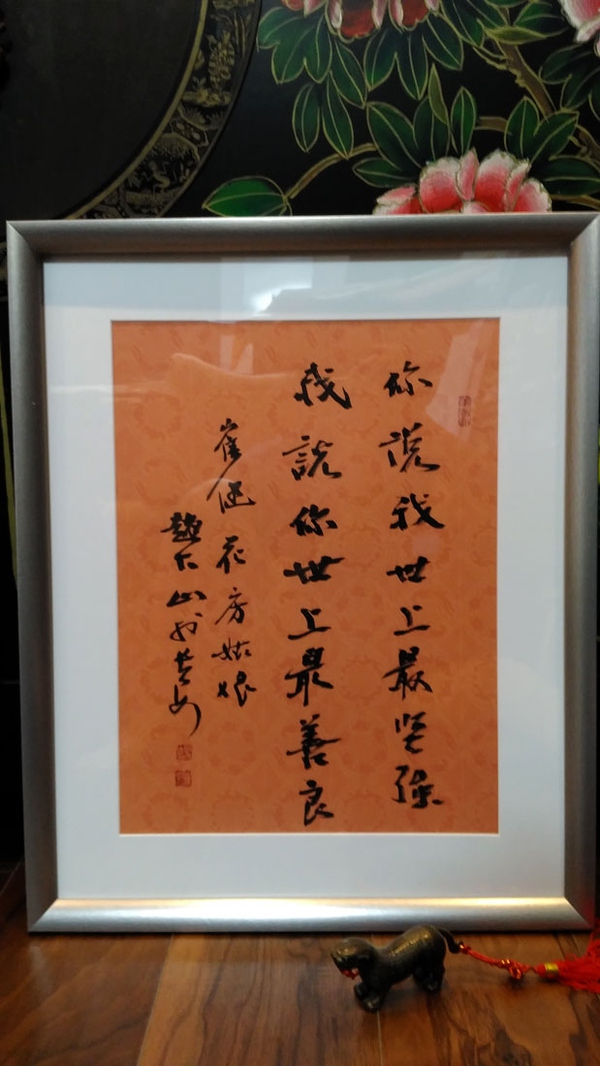 你說我世上最坚强
我說你世上最善良
崔健花房姑娘